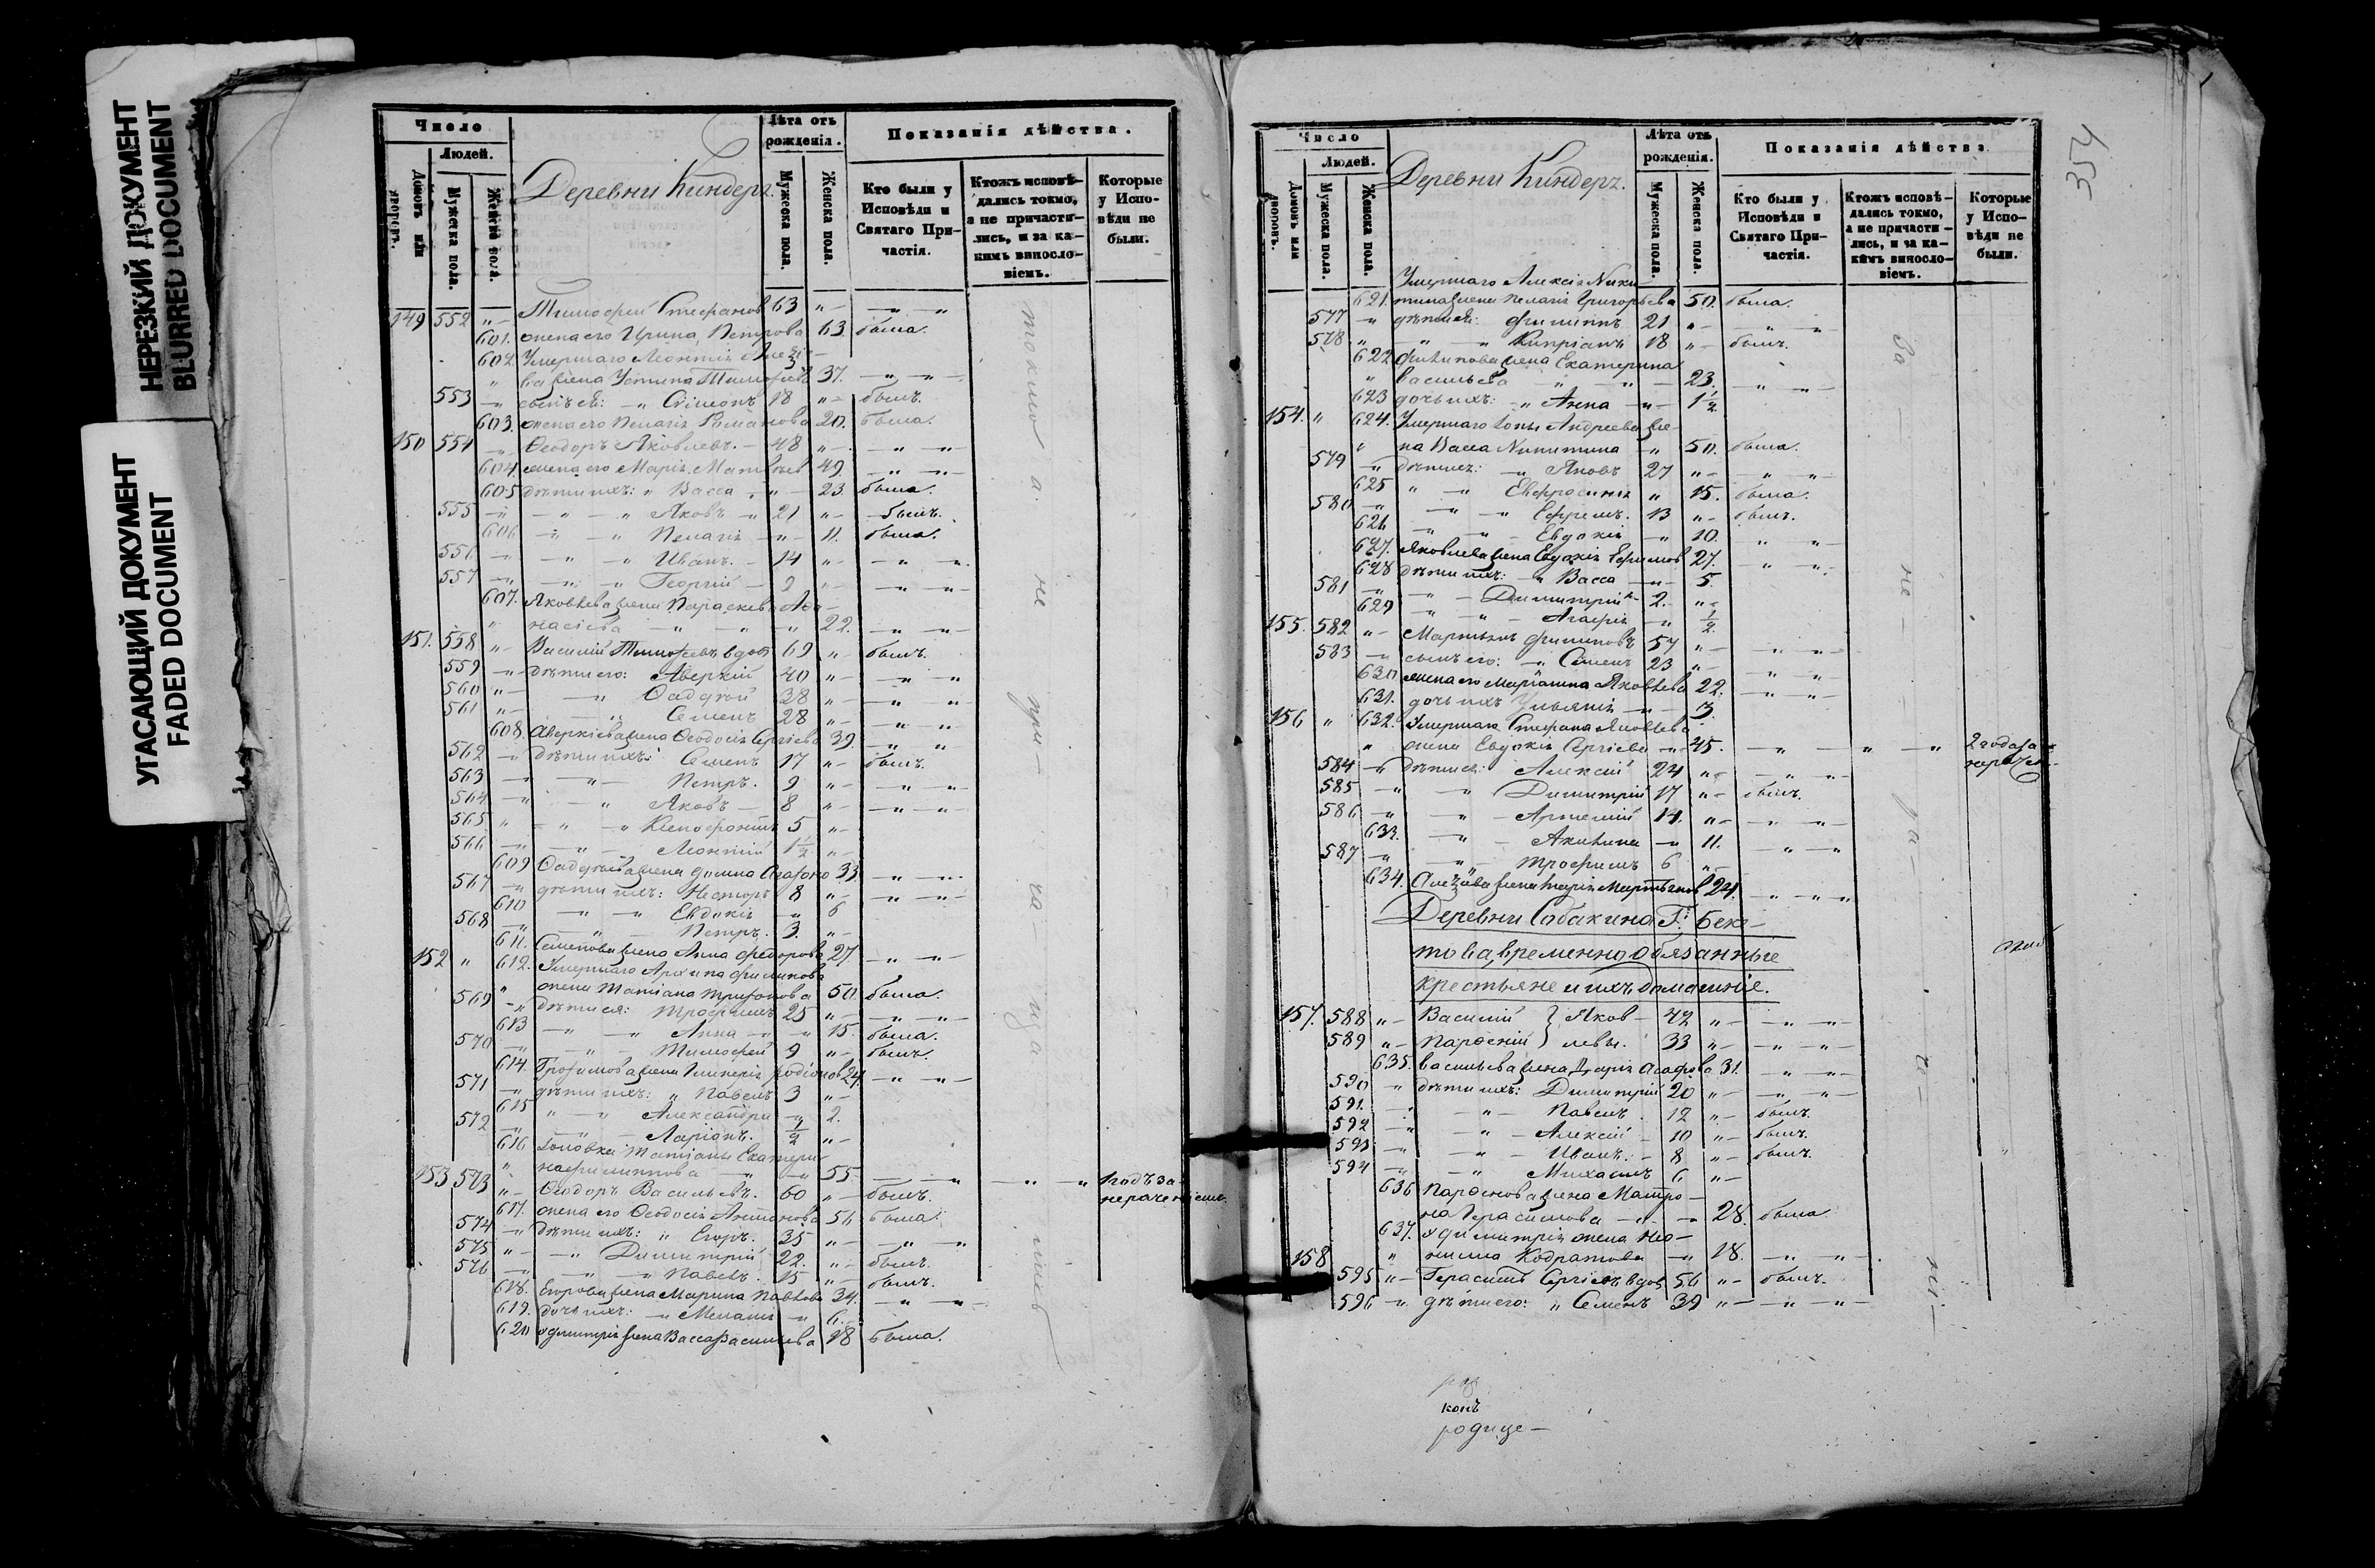 НЕРЕЗКИЙ ДОКУМЕНТ
BLURRED DOCUMENT
УГАСАЮЩИЙ ДОКУМЕНТ
FADED DOCUMENT
Число
Людей.
Домовъ или дворовъ.
Мужеска пола.
Женска пола.
Деревни Киндерь.
Лѣта отъ рожденія.
Мужеска пола.
Женска пола.
Показанія дѣйства.
Кто были у Исповѣди и Святаго Причастія.
Ктожъ исповѣдались токмо, а не причастились, и за какимъ винословіемъ.
Которые у Исповѣди не были.
149 552 "— Тимофей Стефановъ 63 "— —"—"
601. жена его Ирина Петрова 63 была.
602. Умершаго Леонтія Алексѣ-
" ва жена Устина Тимофеев 37. —"—"—
553 —" сынъ ея: —" Симеонъ 18 "— былъ.
603. жена его Пелагія Романова 20. была.
150 554 —" Ѳеодоръ Яковлевъ. — 48 "— —"—"—
604. жена его Марія Матвѣев 49 —"—"—
605 дѣти ихъ: " Васса "— 23. была.
555 —" —"—" Яковъ —" 21 "— былъ.
606 —"—" Пелагія —"— 11. была.
556 —" —"—" Иванъ. — 14 "— —"—"
557 —" —"—" Георгій — 9 "— —"—"—
607. Яковлева жена Параскева Аѳа-
" насіева —"—"—" 22. —"—"—
151. 558 "— Василій Тимофеевъ вдов 69 "— былъ.
559 —" дѣти его: Аверкій 40 "— —"—"
560 "— —" Ѳаддей 38 "— —"—"
561 "— —" Семенъ 28 "— —"—"
608. Аверкіева жена Ѳеодосія Сергіева 39. —"—"
562 —" дѣти ихъ: Семенъ 17 "— былъ.
563 —" —"— Петръ. 9 "— —"—"—
564 —" —" Яковъ — 8 "— —"—"—
565 " —"—" Ксенофонтъ 5 "—
566 —" —"— Леонтій 1½ "—
609 Ѳаддѣева жена Домна Агафоно 33. —"—"—
567 —" дѣти ихъ: Несторъ 8 "— —"—"—
610 —"—" Евдокія —" 6
568 —" —"— Петръ. 3. "—
611. Семенова жена Анна Федорова 27 —"—"—
152 " 612. Умершаго Архипа Филипова
" жена Татіана Трифонова 50. была.
569 —" дѣти ея: Трофимъ 25 "— —"—"—
613 —"—" Анна —"—" 15. была.
570 —" —"— Тимофей 9 "— былъ.
614. Трофимова жена Гликерія Родіонов 24. —"—"—
571 —" дѣти ихъ: " Павелъ 3 "—
615 "—" Александра —" 2.
572 —" —"— Ларіонъ. ½ "—
616 золовка Татіаны Екатери-
" на Филиппова —"—" 55. —"—"—" 1 годъ за
153 573 "— Ѳеодоръ Васильевъ. 60 "— былъ. нераченіемъ.
617. жена его Ѳеодосія Антонова 56 была.
574 —" дѣти ихъ: " Егоръ. 35 "— —"—"
575 "— —" Димитрій 22. "— былъ.
576 —" —"—" Павелъ. 15 "— былъ.
618. Егорова жена Марина Павлова 34. —"—"—
619. дочь ихъ: —" Меланія —" 6.
620 у Димитрія жена Васса Васильева 18 была.
токмо а не при — ча — щались
354
Число
Людей.
Домовъ или дворовъ.
Мужеска пола.
Женска пола.
Деревни Киндерь.
Лѣта отъ рожденія.
Мужеска пола.
Женска пола.
Показанія дѣйства
Кто были у Исповѣди и Святаго Причастія.
Ктожъ исповѣдались токмо, а не причастились, и за какимъ винословіемъ.
Которые у Исповѣди не были.
Умершаго Алексія Ники-
621. тина жена Пелагія Григорьева 50. была.
577 —" дѣти ея: Филиппъ 21 "— —"—"
578 " "—" Кипріанъ 18 "— былъ.
622 Филипова жена Екатерина
" Васильева —"—"— 23. —"—"—
623 дочь ихъ: " Анна —"— 1½
154. " 624. Умершаго Іоны Андреева же-
" на Васса Никитина —" 50. была.
579 —" дѣти ихъ: —" Яковъ 27 "— —"—"
625 "—" Евфросинія " 15. была.
580 —" —"—" Ефремъ. 13 "— былъ.
626 —"—" Евдокія —" 10. —"—"
627. Яковлева жена Евдокія Ефимов 27. —"—"—
628 дѣти ихъ: —" Васса —"— 5.
581 —" —"— Димитрій 2. "—
629 —"— Агафія —" ½
155. 582 "— Мартынъ Филиповъ 57 "— —"—"—
583 —" сынъ его: —" Семенъ 23 "— —"—"
630 жена его Маріанна Яковлева 22. —"—"—
631. дочь ихъ Ульянія —"— 3.
156 " 632. Умершаго Стефана Яковлева
" жена Евдокія Сергіева —" 45. —"—"—" 2 года за
584 —" дѣти ея: Алексій 24 "— —"—"— нерачен.
585 —" —" Димитрій 17 "— былъ.
586 —" —"— Артемій 14. "— —"—"—
633. —"— Акилина —" 11. —"—"
587 —" —" Трофимъ 6 "—
634. Алексѣева жена Марія Мартынов 24. —"—"—"
Деревни Собакина Г. Беке-
това, временно обязанные
крестьяне и ихъ домашніе.
157. 588 "— Василій } Яков- 42 "— —"—"—
589 "— Парѳеній } левы. 33 "— —"—"—
635. Васильева жена Дарія Агафова 31. —"—"—
590 —" дѣти ихъ: Димитрій 20 "— —"—"—
591. —" —"— Павелъ. 12 "— былъ.
592 —" —"— Алексій 10 "— былъ.
593 —" —"— Иванъ. — 8 "— былъ.
594 —" —" Михаилъ 6 "—
636 Парѳенова жена Матро-
на Герасимова —"—" 28. была.
637. у Димитрія жена Нео-
158 " нилла Кодратова —" 18. —"—"—
595 "— Герасимъ Сергіевъ вдов 56 "— былъ.
596 —" дѣти его: " Семенъ 39 "— —"—"—
конъ
родице—